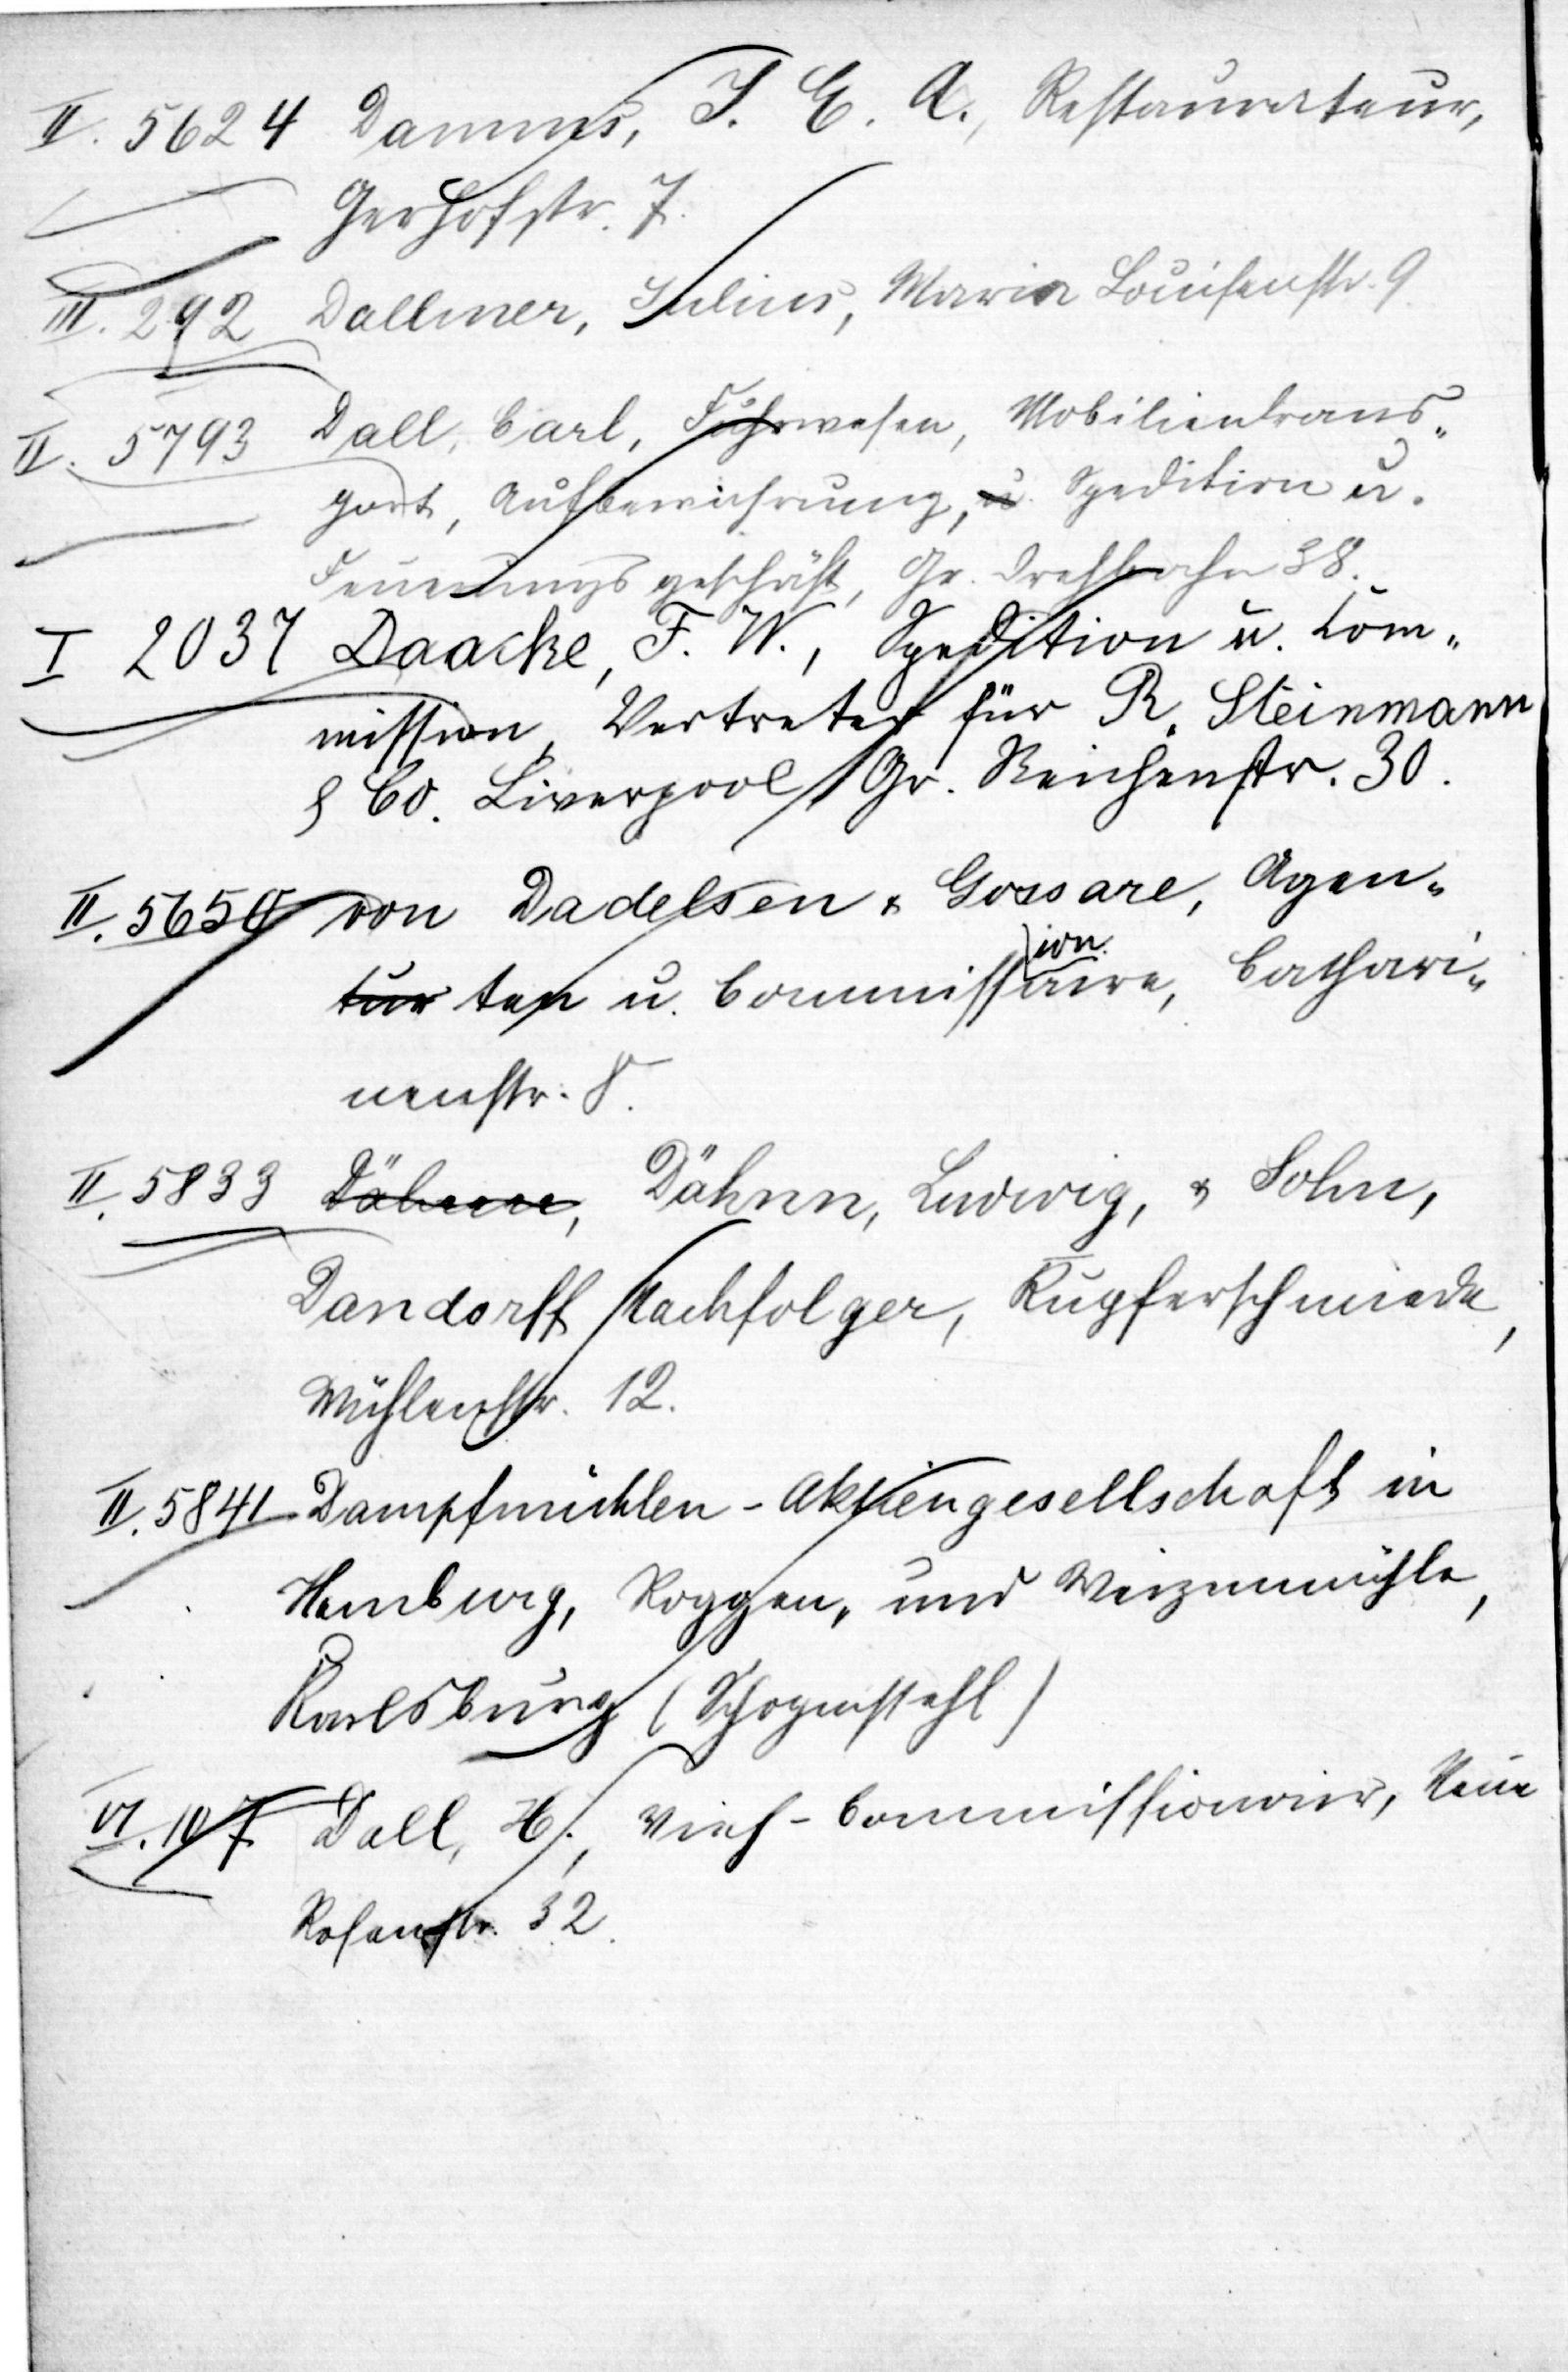 II. 5624 Damms, J. E. A., Restaurateur,
Gerhofstr. 7.
III. 292 Dallmer, Julius, Maria Louisenstr. 9
II. 5793 Dall, Carl, Fuhrwesen, Mobilientrans-
port, Aufbewahrung, u. Spedition u.
Feuerungsgeschäft, Gr. Drehbahn 38.
I 2037 Daacke, F. W., Spedition u. Com-
mission, Vertreter für R. Steinmann
& Co. Liverpool, Gr. Reichenstr. 30.
II. 5650 von Dadelsen & Gossare, Agen-
tur ten u. Commissaire, Cathari-
ion.
nenstr. 8.
II. 5833 Dähnne, Dähnn, Ludwig, & Sohn,
Dandorff Nachfolger, Kupferschmiede,
Mühlenstr. 12.
II. 5841 Dampfmühlen-Aktiengesellschaft in
Hamburg, Roggen- und Weizenmühle,
Karlsburg (Schopenstehl)
VI. 107 Dall, H., Vieh-Commissionair, Neue
Rosenstr. 32.